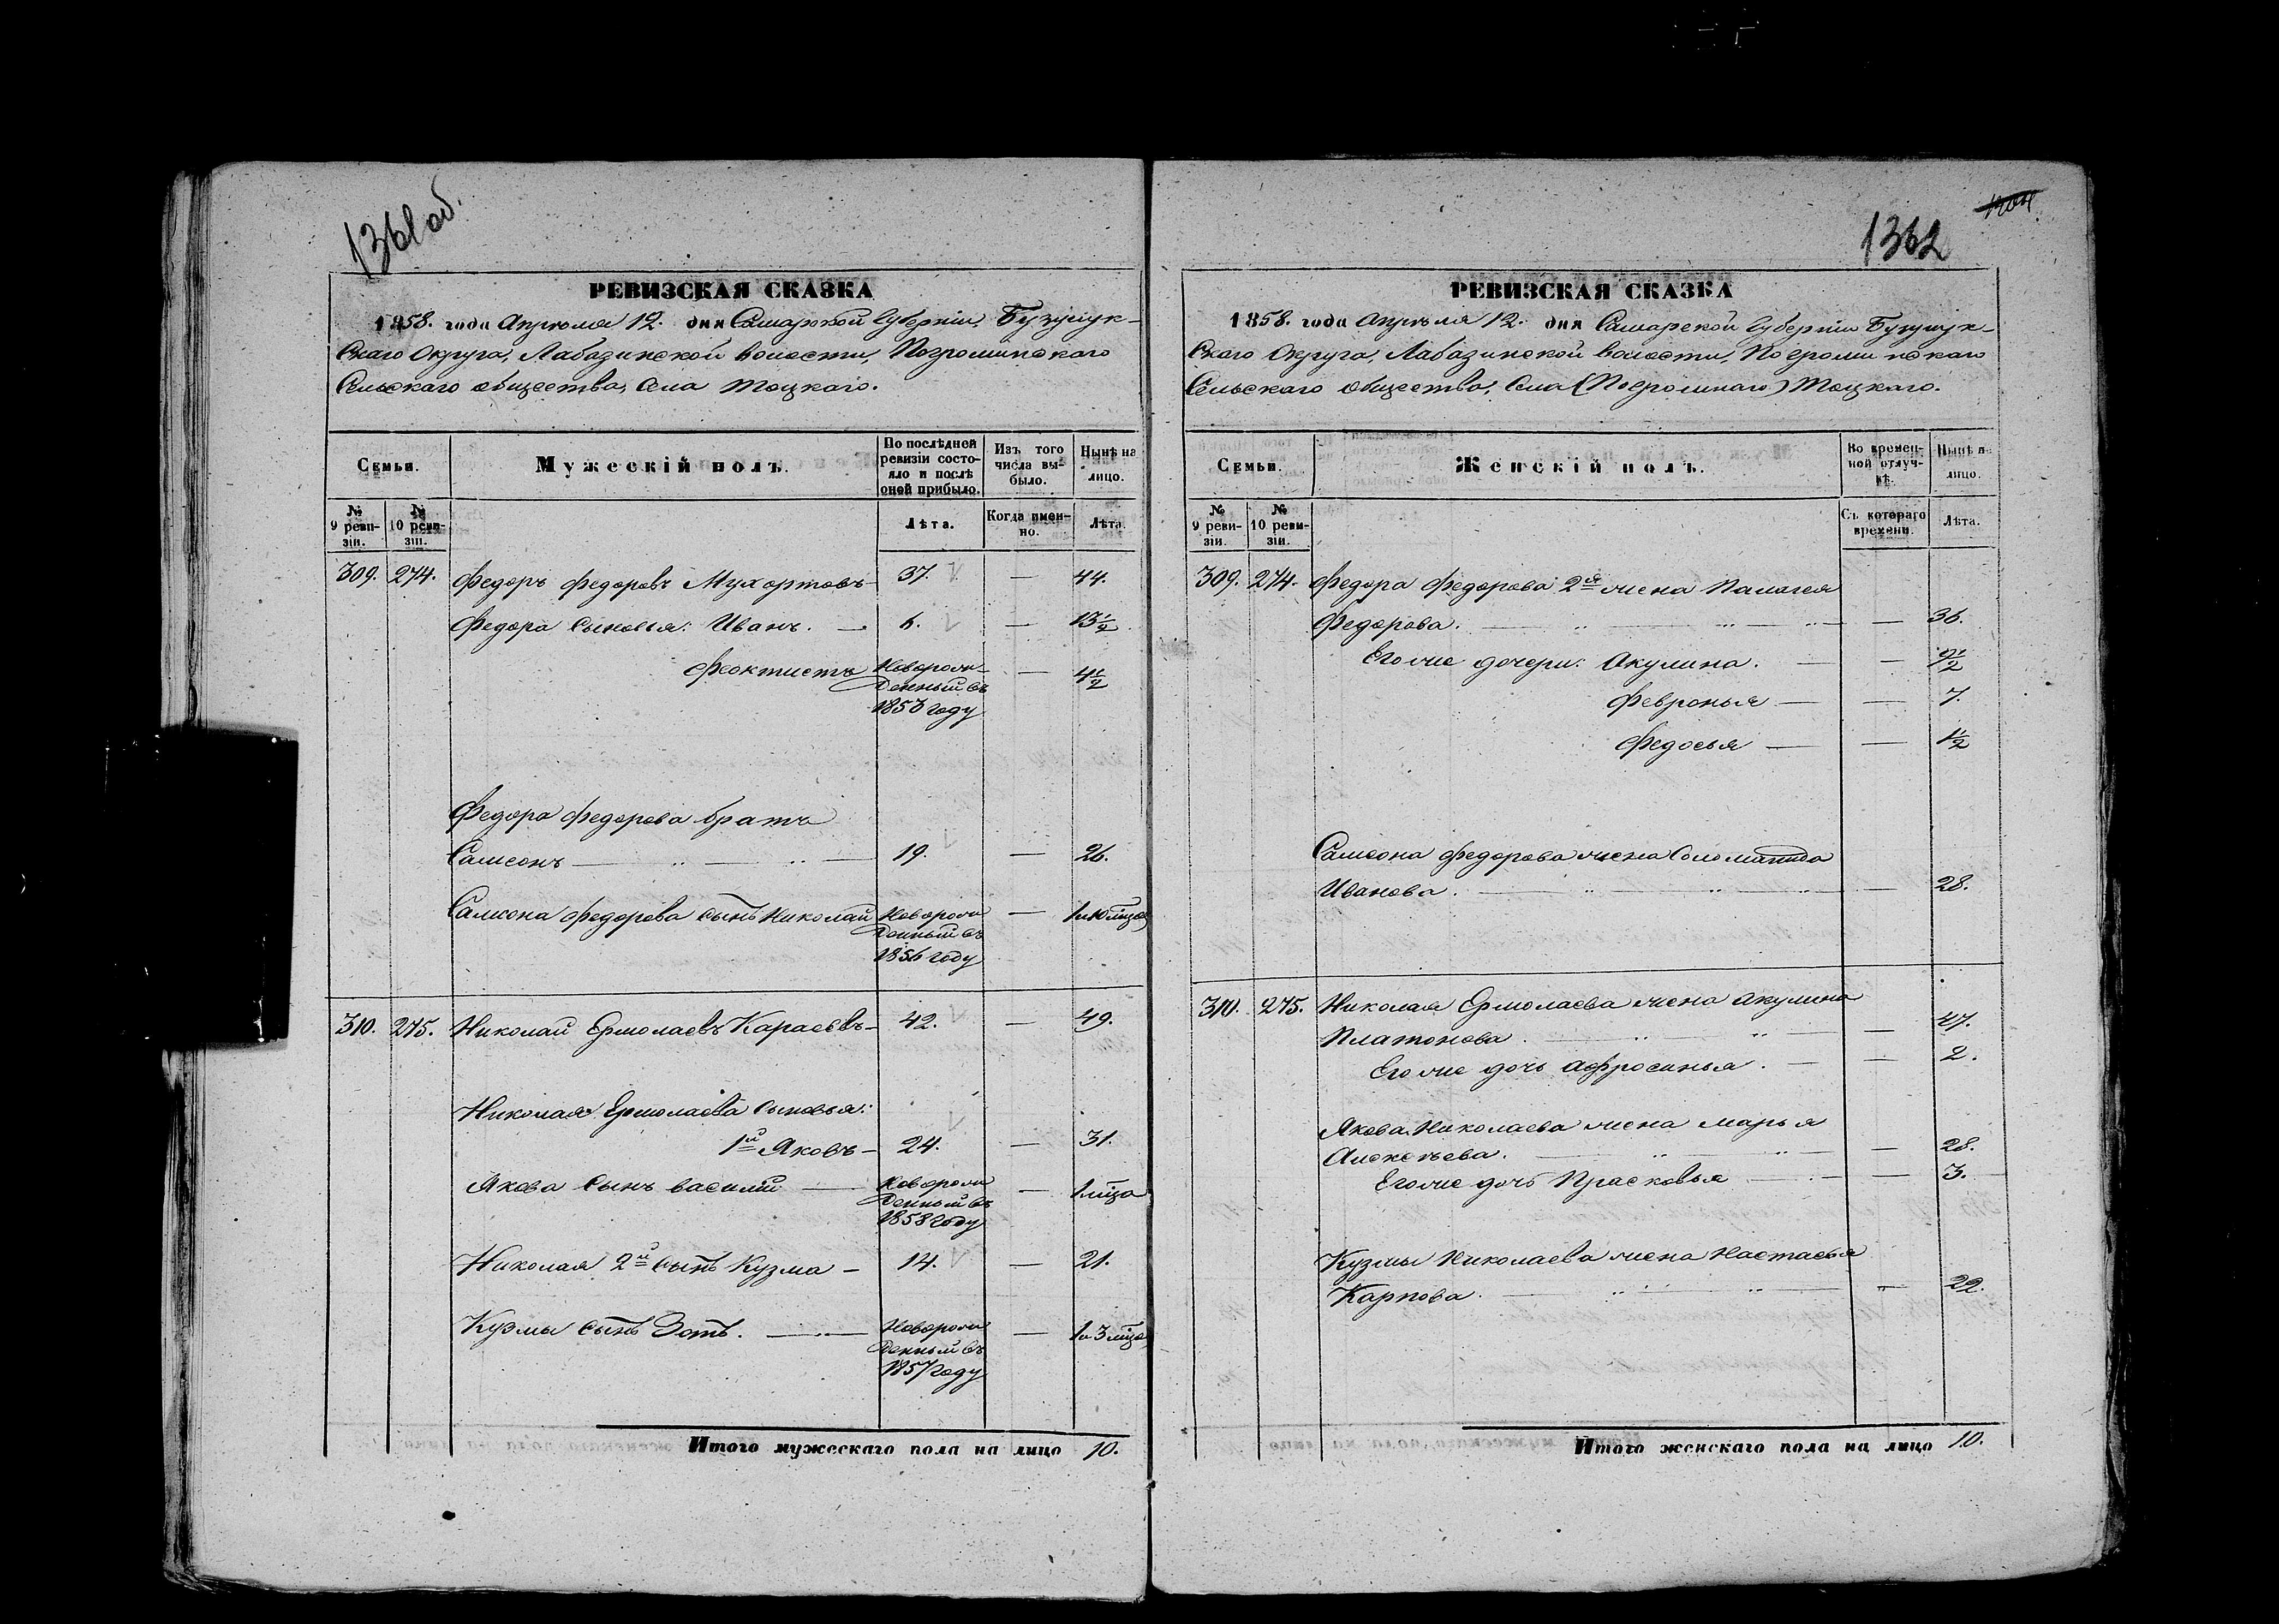 1361 об.
РЕВИЗСКАЯ СКАЗКА
1858. года Апрѣля 12. дня Самарской Губерніи, Бузулук-
скаго Округа, Лабазинской волости, Погроминскаго
Сельскаго общества, Села Тоцкаго.
Семьи.
Мужескій полъ.
По послѣдней ревизіи состо-
яло и послѣ
оной прибыло.
Изъ того
числа вы-
было.
Нынѣ на
лицо.
№
9 реви-
зіи.
№
10 реви-
зіи.
Лѣта.
Когда имен-
но.
Лѣта.
309. 274. Федоръ Федоровъ Мухортовъ 37. — 44.
Федора сыновья: Иванъ. — 6. — 13½
Феоктистъ Новорож-
денный въ
1853 году — 4½
Федора Федорова братъ
Самсонъ — 19. — 26.
Самсона Федорова сынъ Николай Новорож
денный въ
1856 году — 1 и 10 мѣсяц
310. 275. Николай Ермолаевъ Караевъ — 42. — 49.
Николая Ермолаева сыновья:
1й Яковъ — 24. — 31.
Якова сынъ Василий — Новорож
денный въ
1858 году — 1 мѣсяца
Николая 2й сынъ Кузма — 14. — 21.
Кузмы сынъ Зотъ. — Новорож
денный въ
1857 году — 1 и 3 мѣсяц
Итого мужескаго пола на лицо 10.
1362
РЕВИЗСКАЯ СКАЗКА
1858. года Апрѣля 12. дня Самарской Губерніи Бузулук-
скаго Округа, Лабазинской волости, Погроминскаго
Сельскаго общества, Села (Погромнаго) Тоцкаго.
Семьи.
Женскій полъ.
Во времен-
ной отлуч-
кѣ.
Нынѣ на
лицо.
№
9 реви-
зіи.
№
10 реви-
зіи.
Съ котораго
времени.
Лѣта.
309. 274. Федора Федорова 2я жена Палагея
Федорова. — 36.
Его же дочери: Акулина. — — 9½
Февронья — — 7.
Федосья — — 1½
Самсона Федорова жена Соломанида
Иванова. — 28.
310. 275. Николая Ермолаева жена Акулина
Платонова. — 47.
Его же дочь Афросинья. — — 2.
Якова Николаева жена Марья
Алексѣева. — 28.
Его же дочь Прасковья — — 3.
Кузмы Николаева жена Настасья
Карпова. — 22.
Итого женскаго пола на лицо 10.